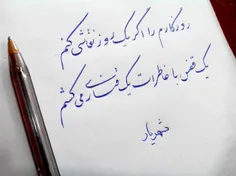 روزگارم را اگر یک روز نقاشی کنم
یک قفس با خاطرات یک قناری می کشم
شهریار